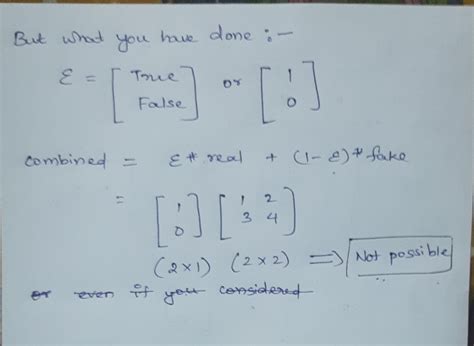 But what you have done :-
ε = [ True False ] or [ 1 0 ]
combined = ε * real + (1 - ε) * fake
= [ 1 0 ] [ 1 2 3 4 ]
(2 x 1) (2 x 2) => Not possible
or even if you considered